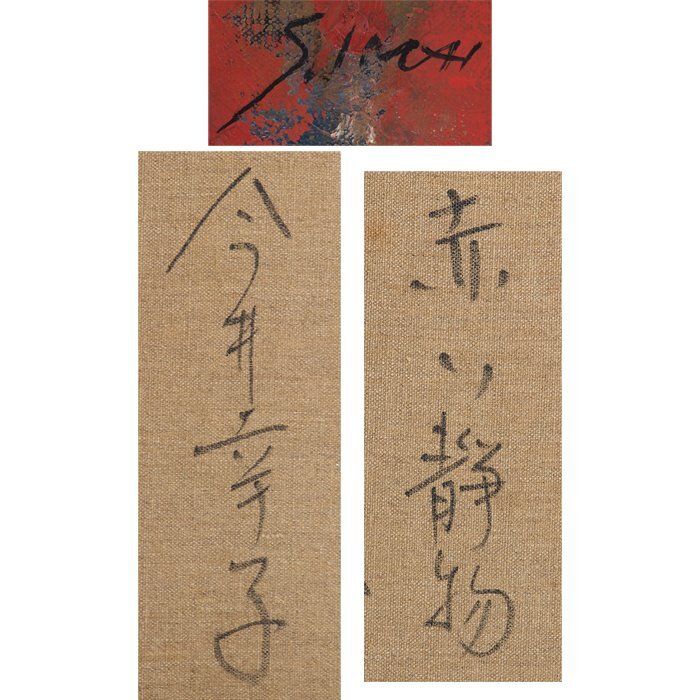 S. IMAI
今井幸子
赤い静物